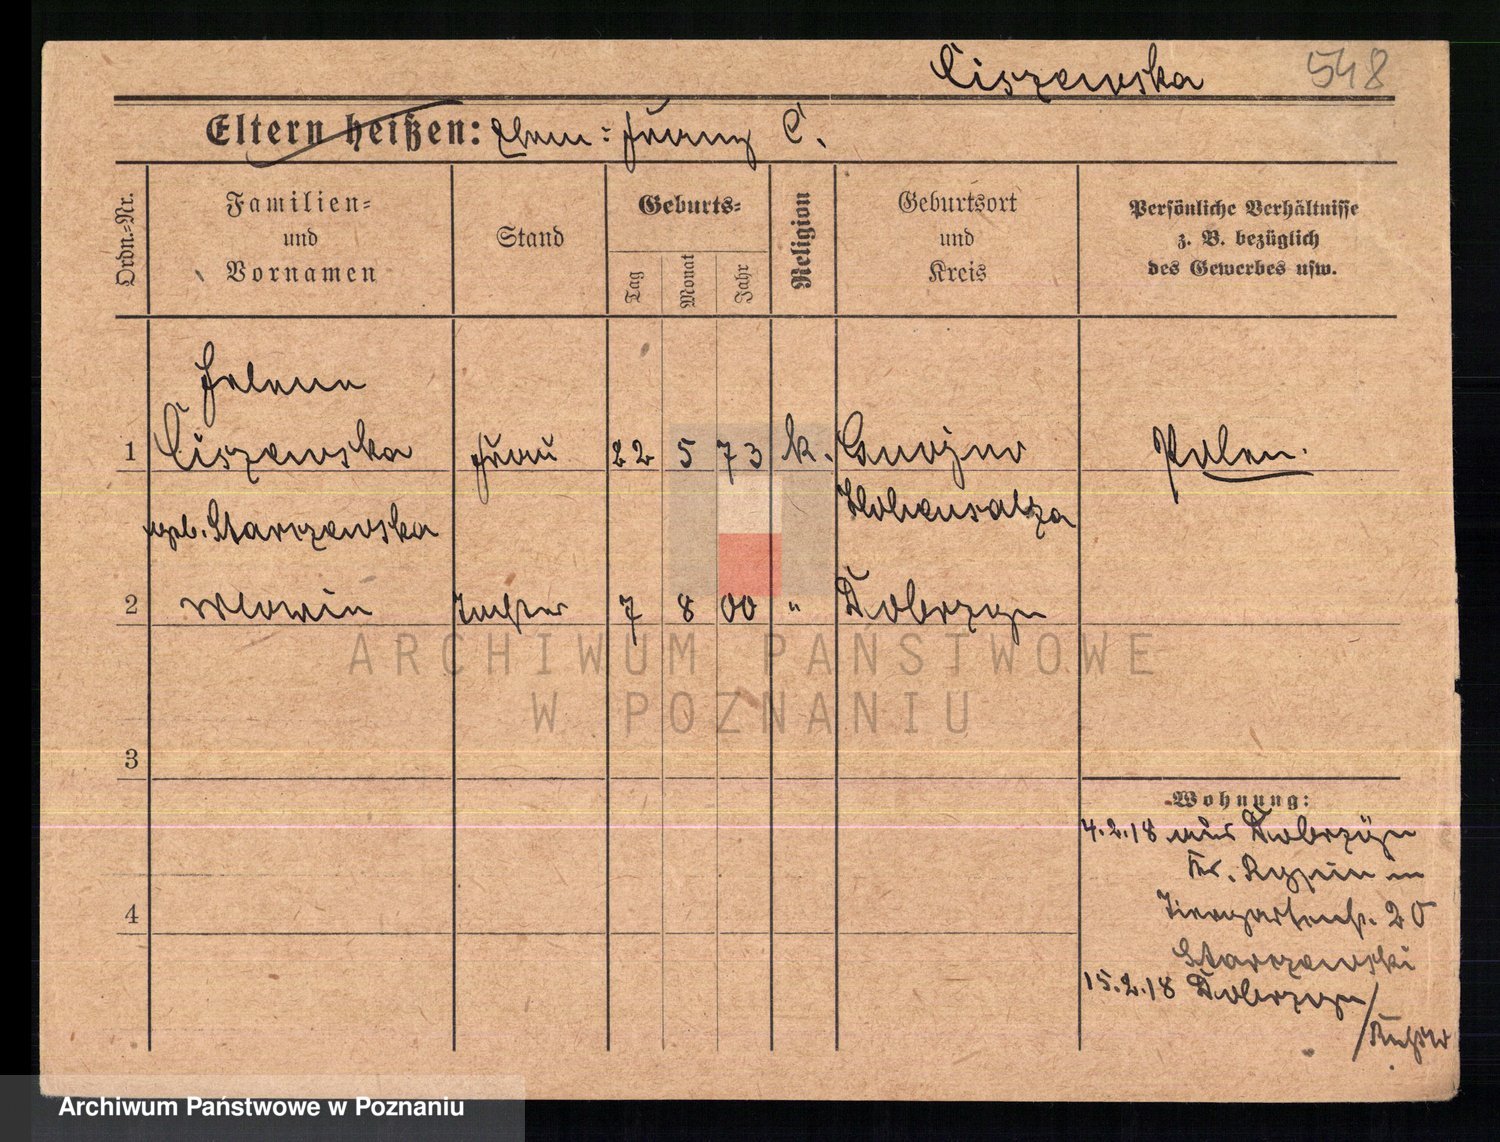 Ciszewska 548
Eltern heißen: Ehem: Franz C.
Ordn.-Nr.
Familien-
und
Vornamen
Stand
Geburts-
Tag
Monat
Jahr
Religion
Geburtsort
und
Kreis
Persönliche Verhältnisse
z. B. bezüglich
des Gewerbes usw.
Helene
1 Ciszewska Frau 22 5 73 k. Gnojno Polen.
Hohensalza
geb. Starczewska
2 Tochter 7 8 00 " Dobrzyn
3
4
Wohnung:
4.2.18 aus Dobrzyn
Kr. Rypin in
Tiergartenstr. 20
Starczewski
15.2.18 Dobrzyn/
ARCHIWUM PAŃSTWOWE
W POZNANIU
Archiwum Państwowe w Poznaniu